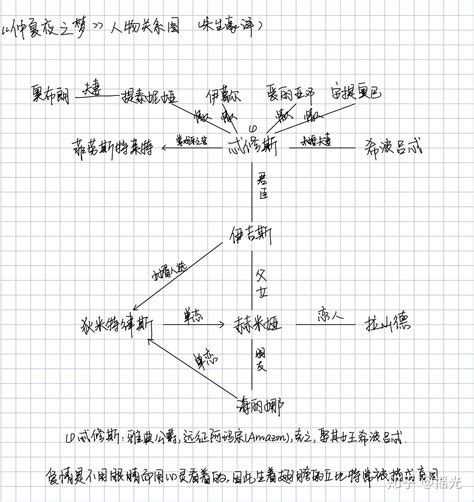 《仲夏夜之梦》人物关系图 (朱生豪译)
奥布朗 夫妻 提泰妮娅 伊葛尔 爱丽亚邓 安提奥巴
傲 傲 傲 傲
菲劳斯特莱特 忒修斯 未婚夫妻 希波吕忒
君臣
伊吉斯
父女
狄米特律斯 单恋 赫米娅 恋人 拉山德
单恋 朋友
海丽娜
①忒修斯:雅典公爵,远征阿玛宗(Amazon),克之,娶其女王希波吕忒.
爱情是不用眼睛而用心灵看着的,因此生着翅膀的丘比特常被描成盲目
知乎 @摇光